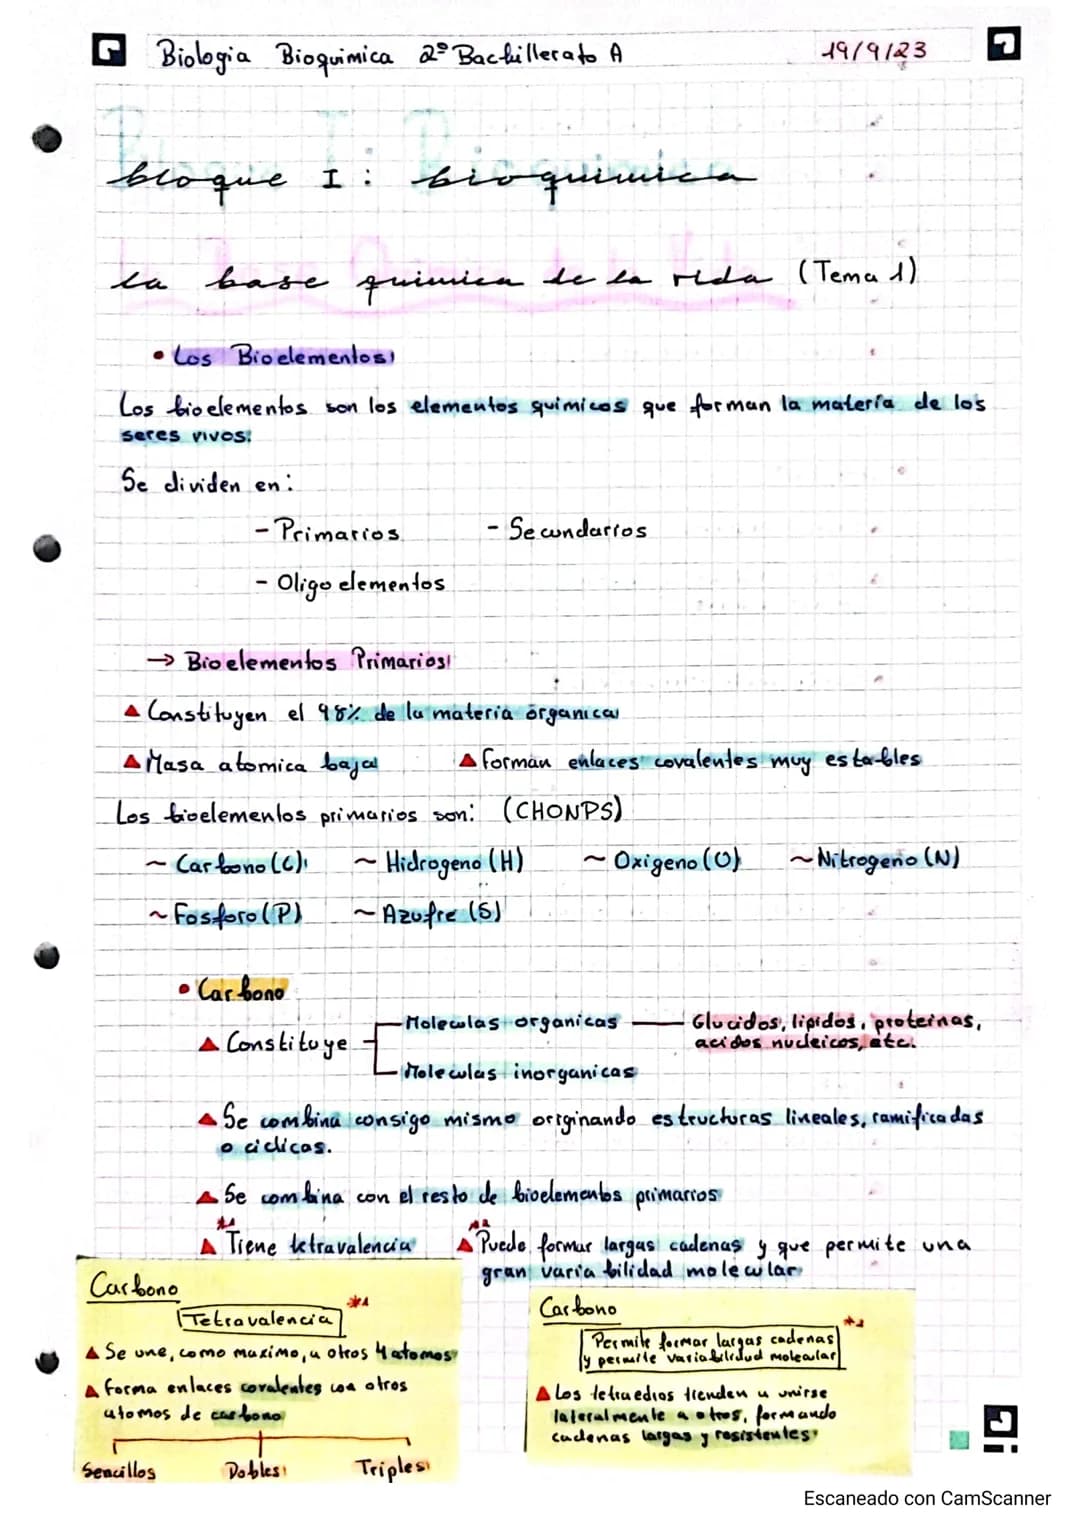 Biologia Bioquimica 2º Bachillerato A 19/9/23
Bloque I: Bioquimica
bloque I: bioquimica
la base quimica de la vida (Tema 1)
• Los Bioelementos
Los bioelementos son los elementos quimicos que forman la materia de los
seres vivos.
Se dividen en:
- Primarios - Secundarios
- Oligoelementos
→ Bioelementos Primarios
▲ Constituyen el 98% de la materia organica
▲ Masa atomica baja ▲ forman enlaces covalentes muy estables
Los bioelementos primarios son: (CHONPS)
~ Carbono (C) ~ Hidrogeno (H) ~ Oxigeno (O) ~ Nitrogeno (N)
~ Fosforo (P) ~ Azufre (S)
• Carbono
Moleculas organicas — Glucidos, lipidos, proteinas,
▲ Constituye acidos nucleicos, etc.
Moleculas inorganicas
▲ Se combina consigo mismo originando estructuras lineales, ramificadas
o ciclicas.
▲ Se combina con el resto de bioelementos primarios
*1 *2
▲ Tiene tetravalencia ▲ Puede formar largas cadenas y que permite una
gran variabilidad molecular
Carbono
Tetravalencia *1
▲ Se une, como maximo, a otros 4 atomos
▲ forma enlaces covalentes con otros
atomos de carbono
Sencillos Dobles Triples
Carbono
*2
Permite formar largas cadenas
y permite variabilidad molecular
▲ Los tetraedros tienden a unirse
lateralmente a otros, formando
cadenas largas y resistentes
Escaneado con CamScanner